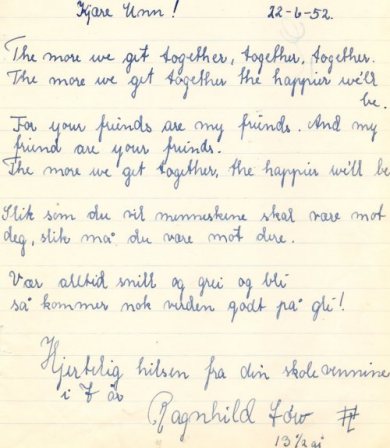 Kjære Unn! 22-6-52.
The more we get together, together, together.
The more we get together the happier we'll
be.
For your friends are my friends. And my
friend are your friends.
The more we get together, the happier we'll be
Slik som du vil menneskene skal være mot
deg, slik må du være mot dere.
Vær alltid snill og grei og bli
så kommer nok verden godt på gli!
Hjertelig hilsen fra din skolevenninne
i 7 år
Ragnhild
13 1/2 år